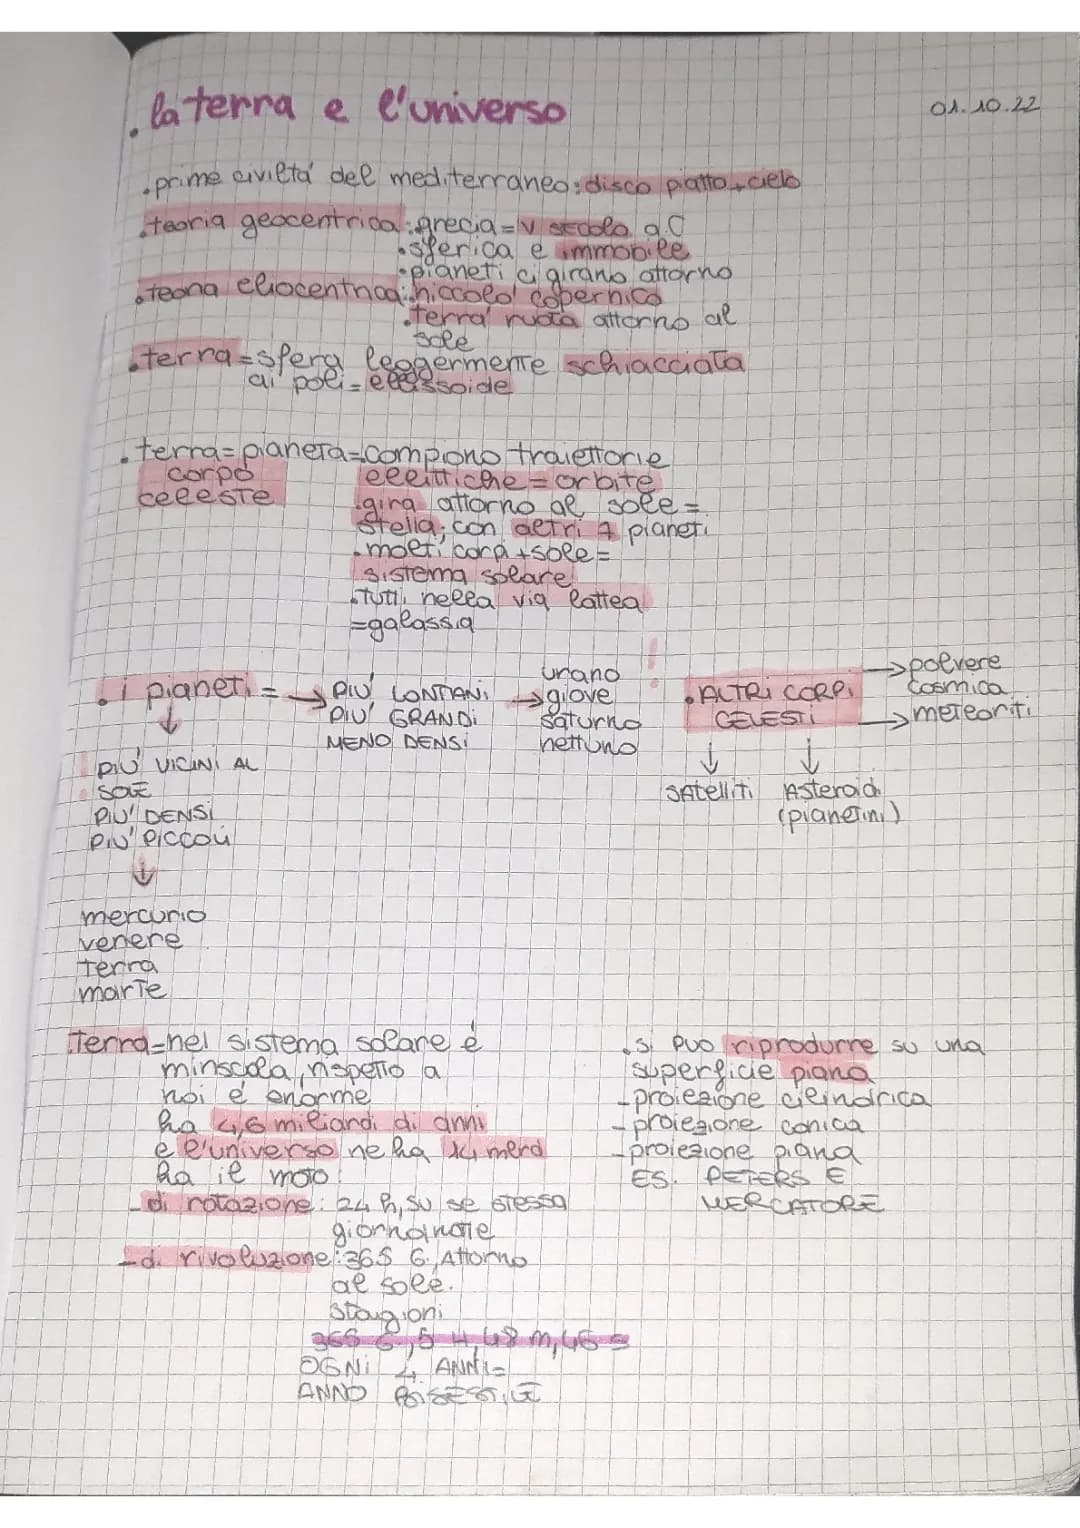 la terra e l'universo
01.10.22
.prime civiltá del mediterraneo: disco piatto + cielo
.teoria geocentrica: grecia = V secolo a.C
.sferica e immobile
.pianeti ci girano attorno
.teoria eliocentrica: niccolo' copernico
.terra ruota attorno al
sole
.terra = sfera leggermente schiacciata
ai poli = elissoide
.terra = pianeta = compiono traiettorie
corpo ellittiche = orbite
celeste .gira attorno al sole =
stella; con altri 7 pianeti
.molti corpi + sole =
sistema solare
.tutti nella via lattea
= galassia
.i pianeti = → PIU' LONTANI → urano
PIU' GRANDI giove
MENO DENSI saturno
nettuno
↓
! PIU' VICINI AL
SOLE
PIU' DENSI
PIU' PICCOLI
↓
mercurio
venere
terra
marte
!
.ALTRI CORPI
CELESTI
→ polvere
cosmica
→ meteoriti
↓ ↓
satelliti Asteroidi
(pianetini)
.Terra = nel sistema solare é
minscola, rispetto a
noi é enorme
ha 4,6 miliardi di anni
e l'universo ne ha 14 merd
ha il moto:
- di rotazione: 24 h, su se stessa
giorno/notte
- di rivoluzione: 365 G. Attorno
al sole.
stagioni
365 G, 5 H, 48 m, 46 s
OGNI 4 ANNI =
ANNO BISESTILE
.si puo riprodurre su una
superficie piana
- proiezione cilindrica
- proiezione conica
- proiezione piana
ES. PETERS E
MERCATORE